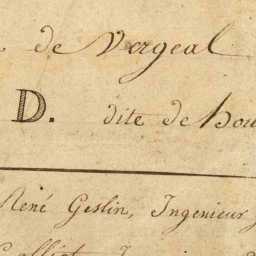 de Vergeal
D. dite de
René Geslin, Ingenieur